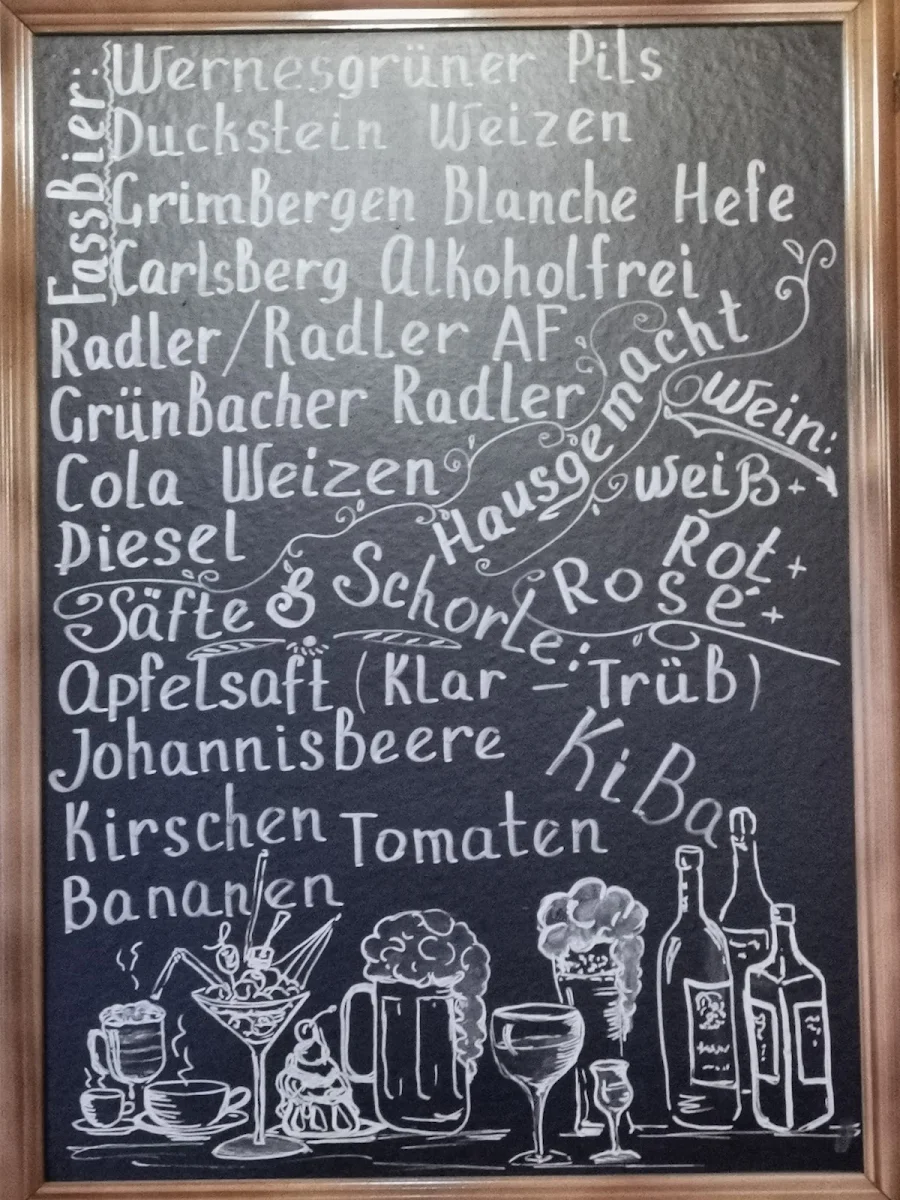 FassBier:
Wernesgrüner Pils
Duckstein Weizen
GrimBergen Blanche Hefe
CarlsBerg Alkoholfrei
Radler/Radler AF
GrünBacher Radler
Cola Weizen
Diesel
Hausgemacht
Wein:
Weiß+
Rot+
Rosé+
Säfte & Schorle:
Apfelsaft (Klar - TrüB)
JohannisBeere
KiBa
Kirschen Tomaten
Bananen